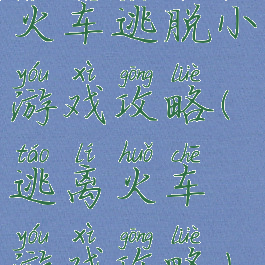 火车逃脱小
yóu xì gōng lüè
游戏攻略(
táo lí huǒ chē
逃离火车
yóu xì gōng lüè
游戏攻略)